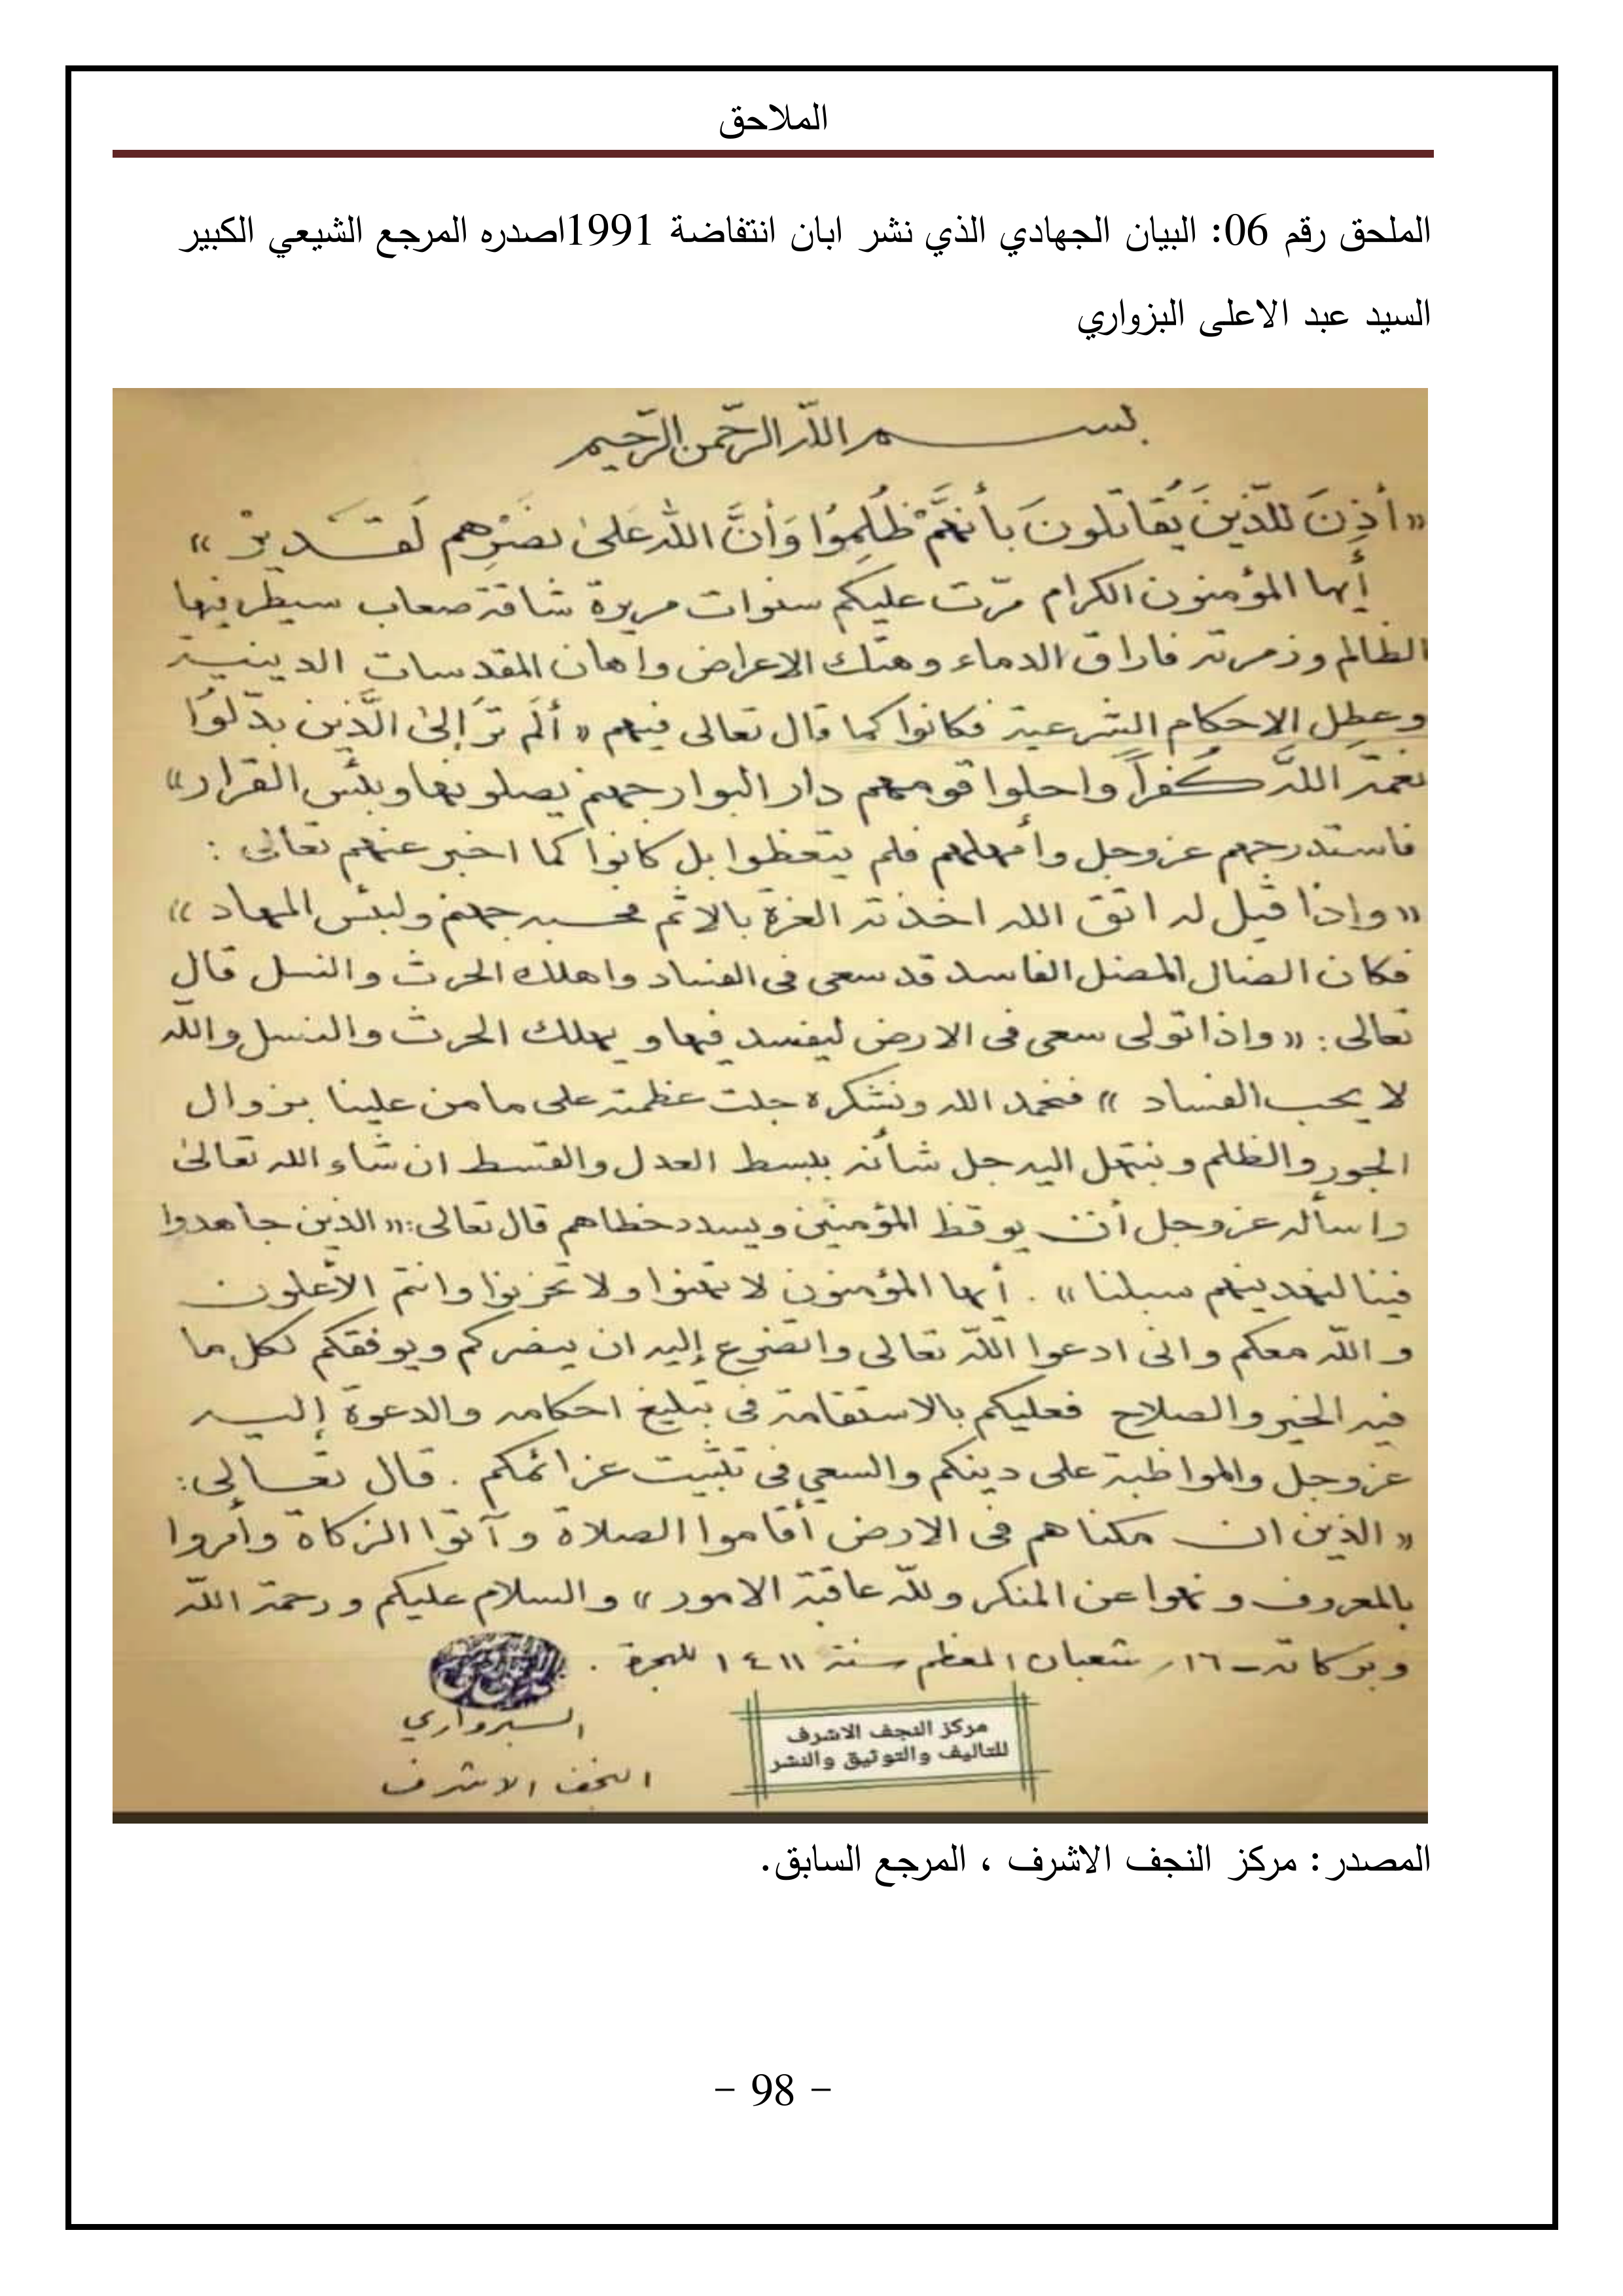 الملاحق
الملحق رقم 06: البيان الجهادي الذي نشر ابان انتفاضة 1991اصدره المرجع الشيعي الكبير
السيد عبد الاعلى البزواري
بسم الله الرحمن الرحيم
«أُذِنَ للَّذينَ يُقاتَلونَ بأَنهَّمْ ظُلِمُوا وَأنَّ اللهَ عَلىٰ نصْرِهم لَقَديرْ»
أيها المؤمنون الكرام مرّت عليكم سنوات مريرة شاقة صعاب سيطر فيها
الظالم وزمرته فاراق الدماء وهتك الاعراض واهان المقدسات الدينية
وعطل الاحكام الشرعية فكانوا كما قال تعالى فيهم «ألَم تَرَ إلىٰ الَّذين بدّلوُا
نعمة اللَّه كُفراً واحلوا قومهم دار البوار جهنم يصلونها وبئس القرار»
فاستدرجهم عزوجل وأمهلهم فلم يتعظوا بل كانوا كما اخبر عنهم تعالى :
«وإذا قيل له اتق الله اخذته العزة بالاثم فحسبه جهنم ولبئس المهاد»
فكان الضال المضل الفاسد قد سعى في الفساد واهلك الحرث والنسل قال
تعالى : «واذا تولى سعى في الارض ليفسد فيها ويهلك الحرث والنسل والله
لا يحب الفساد» فنحمد الله ونشكره جلت عظمته على ما من علينا بزوال
الجور والظلم ونبتهل اليه جل شأنه ببسط العدل والقسط ان شاء الله تعالىٰ
واسأله عزوجل أن يوقظ المؤمنين ويسدد خطاهم قال تعالى :«الذين جاهدوا
فينا لنهدينهم سبلنا» . أيها المؤمنون لا تهنوا ولا تحزنوا وانتم الأعلون
و اللّه معكم واني ادعوا اللّه تعالى واتضرع إليه ان ينصركم ويوفقكم لكل ما
فيه الخير والصلاح فعليكم بالاستقامة في تبليغ احكامه والدعوة إليه
عزوجل والمواظبة على دينكم والسعي في تثبيت عزائمكم . قال تعالى :
«الذين ان مكناهم في الارض أقاموا الصلاة وآتوا الزكاة وأمروا
بالمعروف ونهوا عن المنكر وللّه عاقبة الامور» والسلام عليكم ورحمة اللّه
وبركاته - ١٦ر شعبان المعظم سنة ١٤١١ للهجرة .
السبزواري
النجف الاشرف
مركز النجف الاشرف
للتاليف والتوثيق والنشر
المصدر : مركز النجف الاشرف ، المرجع السابق.
- 98 -